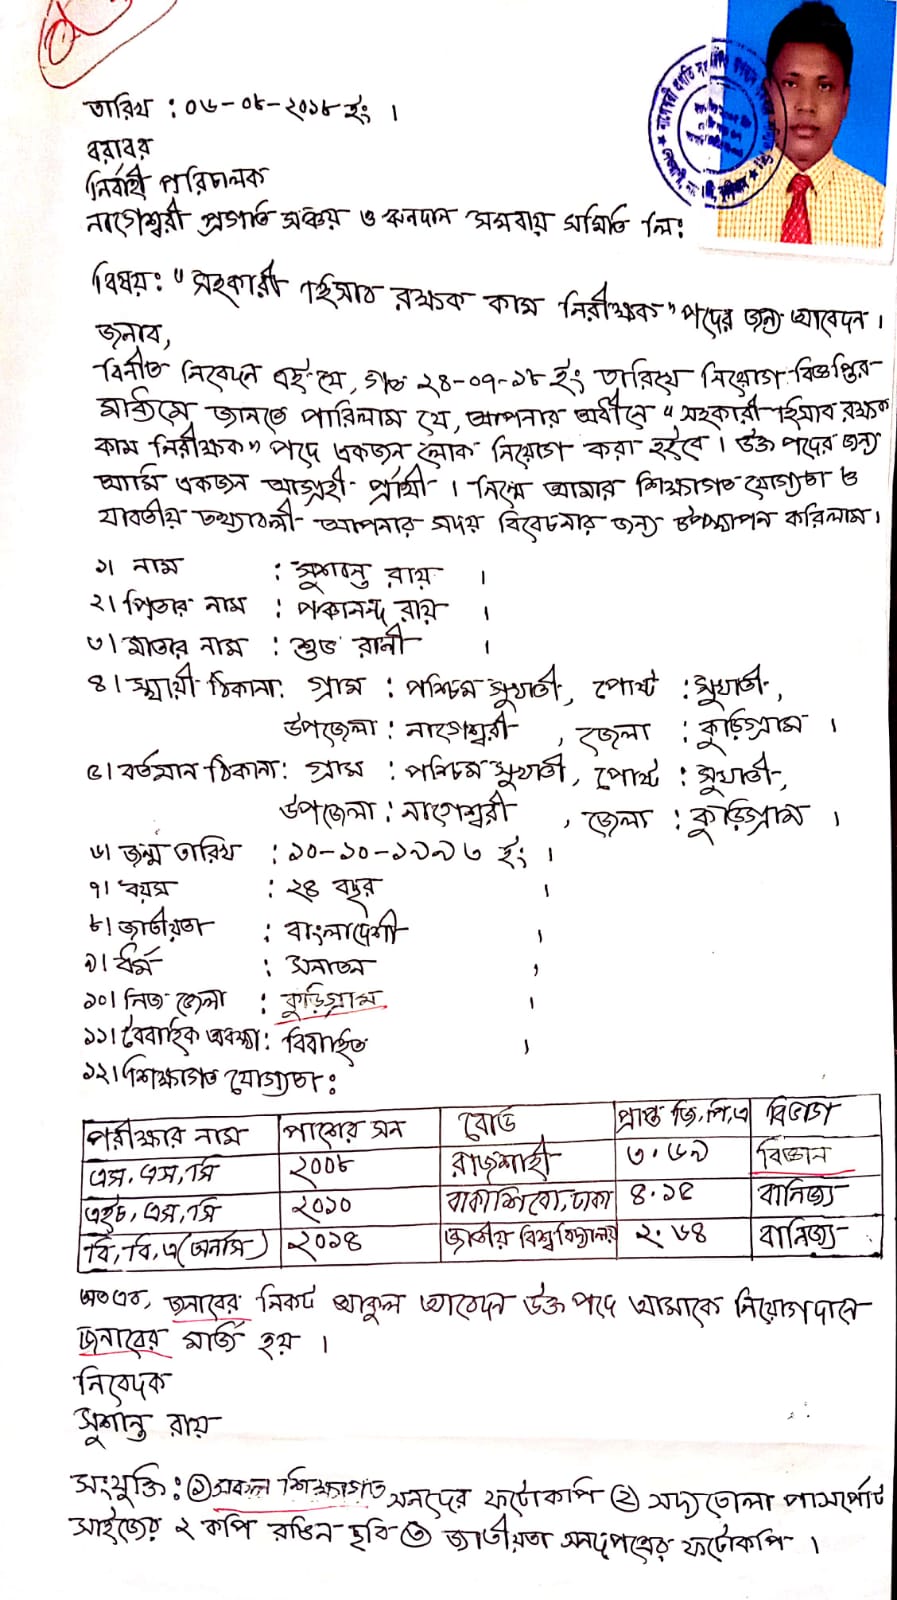 তারিখ : ০৬-০৮-২০১৮ ইং ।
বরাবর
নির্বাহী পরিচালক
নাগেশ্বরী প্রগতি সঞ্চয় ও ঋনদান সমবায় সমিতি লিঃ
বিষয়ঃ "সহকারী হিসাব রক্ষক কাম নিরীক্ষক" পদের জন্য আবেদন ।
জনাব,
বিনীত নিবেদন এই যে, গত ২৪-০৭-১৮ ইং তারিখে নিয়োগ বিজ্ঞপ্তির
মাধ্যমে জানতে পারিলাম যে, আপনার অধীনে "সহকারী হিসাব রক্ষক
কাম নিরীক্ষক" পদে একজন লোক নিয়োগ করা হইবে । উক্ত পদের জন্য
আমি একজন আগ্রহী প্রার্থী । নিম্নে আমার শিক্ষাগত যোগ্যতা ও
যাবতীয় তথ্যাবলী আপনার সদয় বিবেচনার জন্য উপস্থাপন করিলাম ।
১। নাম : সুশান্ত রায় ।
২। পিতার নাম : পকানন্দ রায় ।
৩। মাতার নাম : শুভ রানী ।
৪। স্থায়ী ঠিকানা: গ্রাম : পশ্চিম সুখাতী, পোস্ট : সুখাতী,
উপজেলা : নাগেশ্বরী , জেলা : কুড়িগ্রাম ।
৫। বর্তমান ঠিকানা: গ্রাম : পশ্চিম সুখাতী, পোস্ট : সুখাতী,
উপজেলা : নাগেশ্বরী , জেলা : কুড়িগ্রাম ।
৬। জন্ম তারিখ : ১০-১০-১৯৯৩ ইং ।
৭। বয়স : ২৪ বছর ।
৮। জাতীয়তা : বাংলাদেশী ।
৯। ধর্ম : সনাতন ।
১০। নিজ জেলা : কুড়িগ্রাম ।
১১। বৈবাহিক অবস্থা: বিবাহিত ।
১২। শিক্ষাগত যোগ্যতা :
পরীক্ষার নাম পাশের সন বোর্ড প্রাপ্ত জি,পি,এ বিভাগ
এস,এস,সি ২০০৮ রাজশাহী ৩.৬৯ বিজ্ঞান
এইচ,এস,সি ২০১০ বাকাশিবো,ঢাকা ৪.১৫ বানিজ্য
বি,বি,এ(অনার্স) ২০১৪ জাতীয় বিশ্ববিদ্যালয় ২.৬৪ বানিজ্য
অতএব, জনাবের নিকট আকুল আবেদন উক্ত পদে আমাকে নিয়োগ দানে
জনাবের মর্জি হয় ।
নিবেদক
সুশান্ত রায়
সংযুক্তি : ① সকল শিক্ষাগত সনদের ফটোকপি ② সদ্যতোলা পাসপোর্ট
সাইজের ২ কপি রঙিন ছবি ③ জাতীয়তা সনদপত্রের ফটোকপি ।